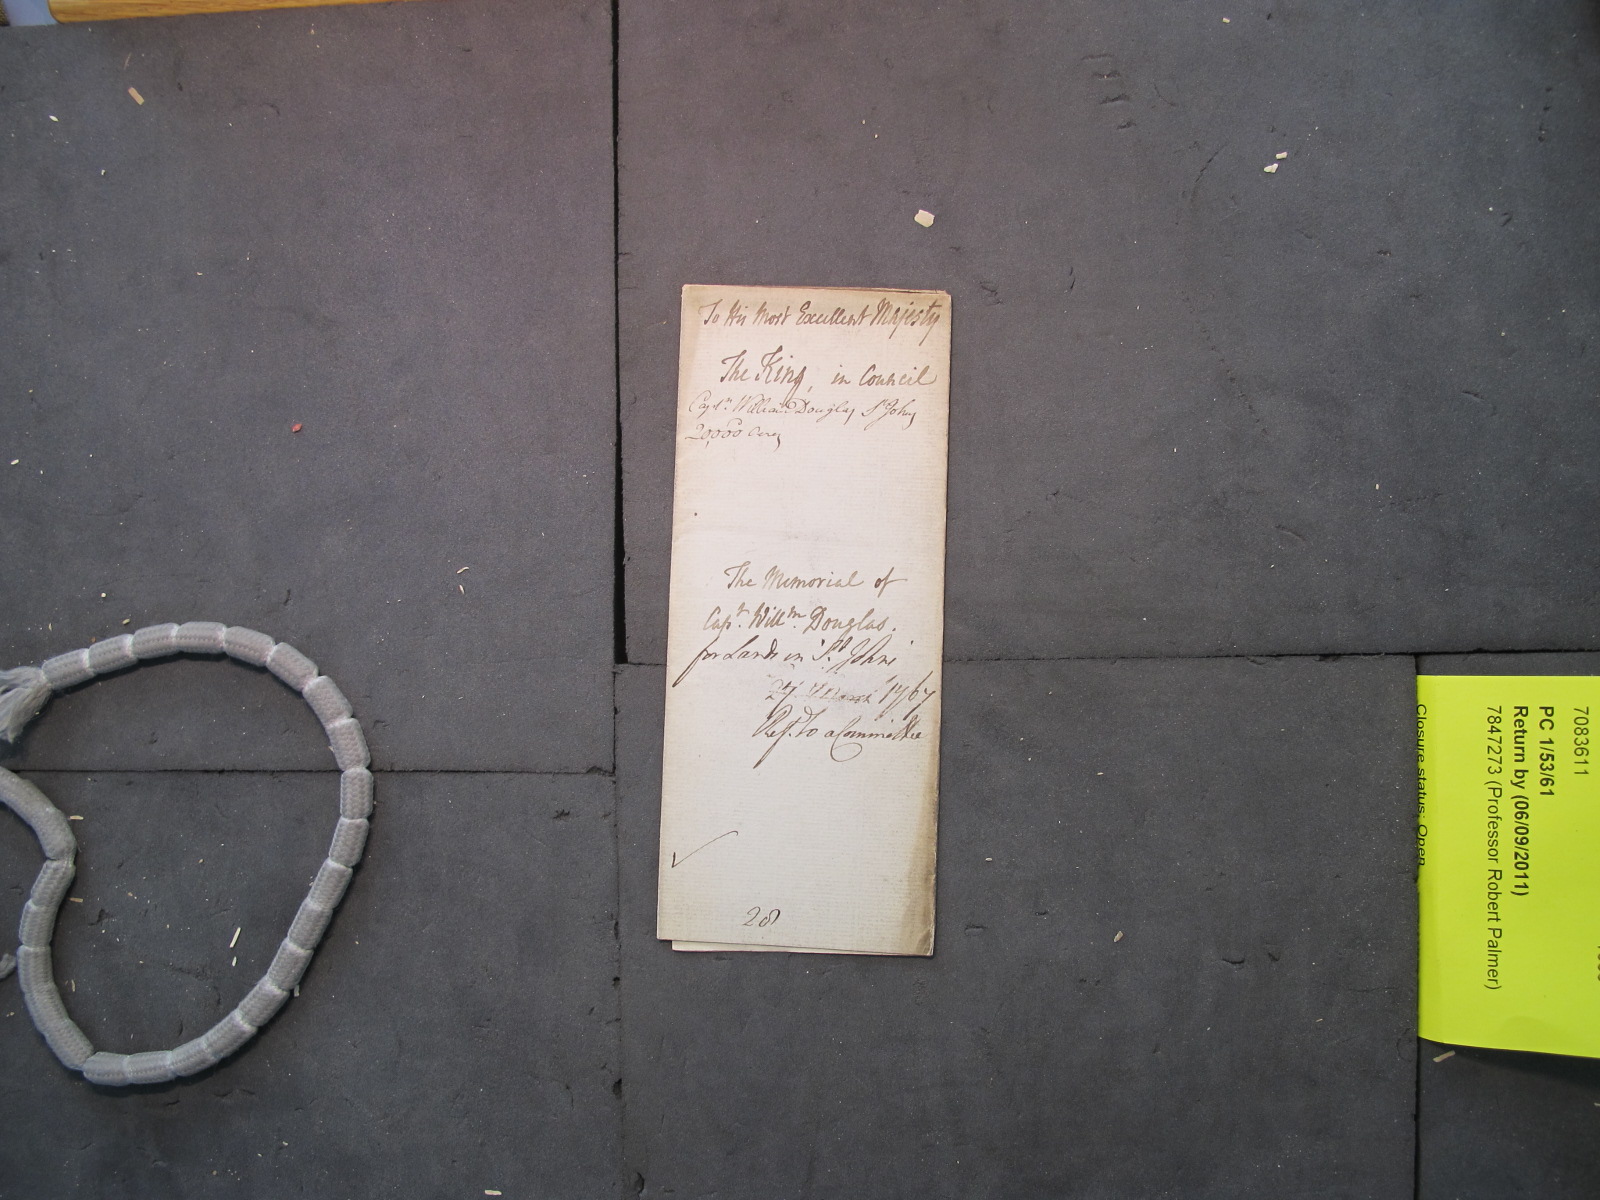 To His Most Excellent Majesty
The King, in Council
Capt.n William Douglas St Johns
20,000 Acres
The Memorial of
Capt. Willm. Douglas.
for Lands in St. Johns
27 1767
Ref.d to a Committee
28
7083611
PC 1/53/61
Return by (06/09/2011)
7847273 (Professor Robert Palmer)
Closure status: Open